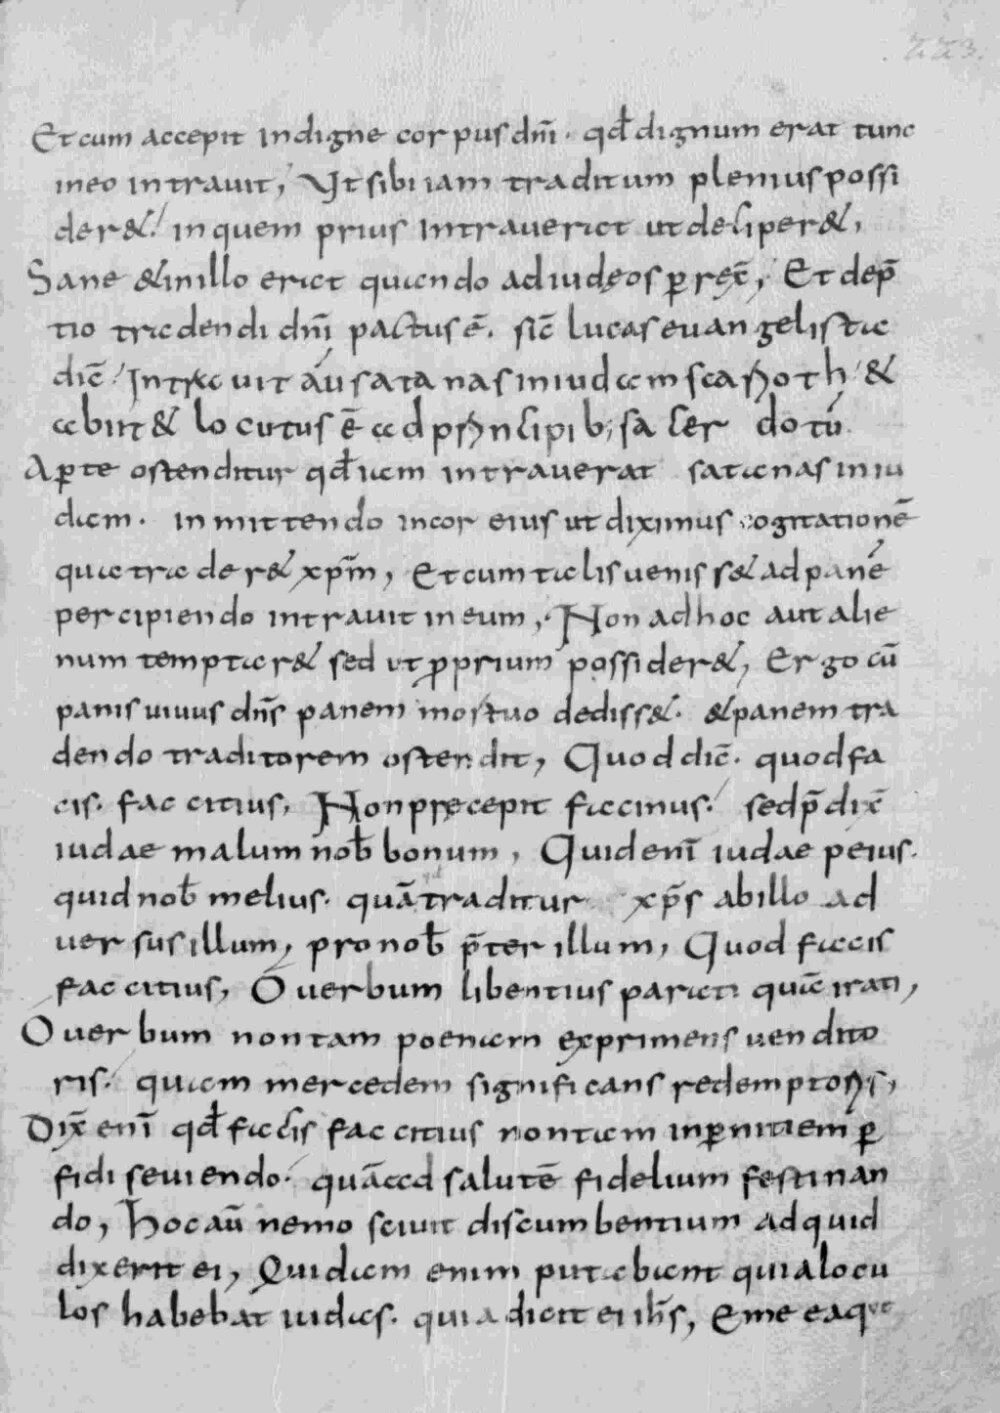 Et cum accepit indigne corpus dnī. qđ dignum erat tunc
in eo intrauit, Vt sibi iam traditum plenius possi
der&. in quem prius intrauerat ut deciper&,
Sane & in illo erat quando ad iudęos perręx̄, Et de p̄
tio tradendi dnī pactus ē. sic̄ lucas euangelista
dic̄. Intrauit aū satanas in iudam scarioth &
abiit & locutus ē ad principib; sacerdotū.
Aperte ostenditur qđ iam intrauerat satanas in iu
dam. in mittendo in cor eius ut diximus cogitationē
qua trader& xp̄m, Et cum talis uenis s& ad panē
percipiendo intrauit in eum, Non adhoc aut alie
num temptar& sed ut proprium possider&, Ergo cū
panis uiuus dn̄s panem mortuo dediss&. & panem tra
dendo traditorem ostendit, Quod dic̄. quod fa
cis. fac citius, Non pręcepit facinus. sed p̄dix̄
iudae malum nob̄ bonum, Quid enī iudae peius.
quid nob̄ melius. quā traditur xp̄s ab illo ad
uersus illum, pro nob̄ p̄ter illum, Quod facis
fac citius, O uerbum libentius parati quā irati,
O uerbum non tam poenam exprimens uendito
ris. quam mercedem significans redemptoris,
Dix̄ enī qđ facis fac citius non tam in pernitiem per
fidi seuiendo. quā ad salutē fidelium festinan
do, Hoc aū nemo sciuit discumbentium ad quid
dixerit ei, Quidam enim putabant quia locu
los habebat iudas. quia dicit ei ih̄s, Eme ea quę